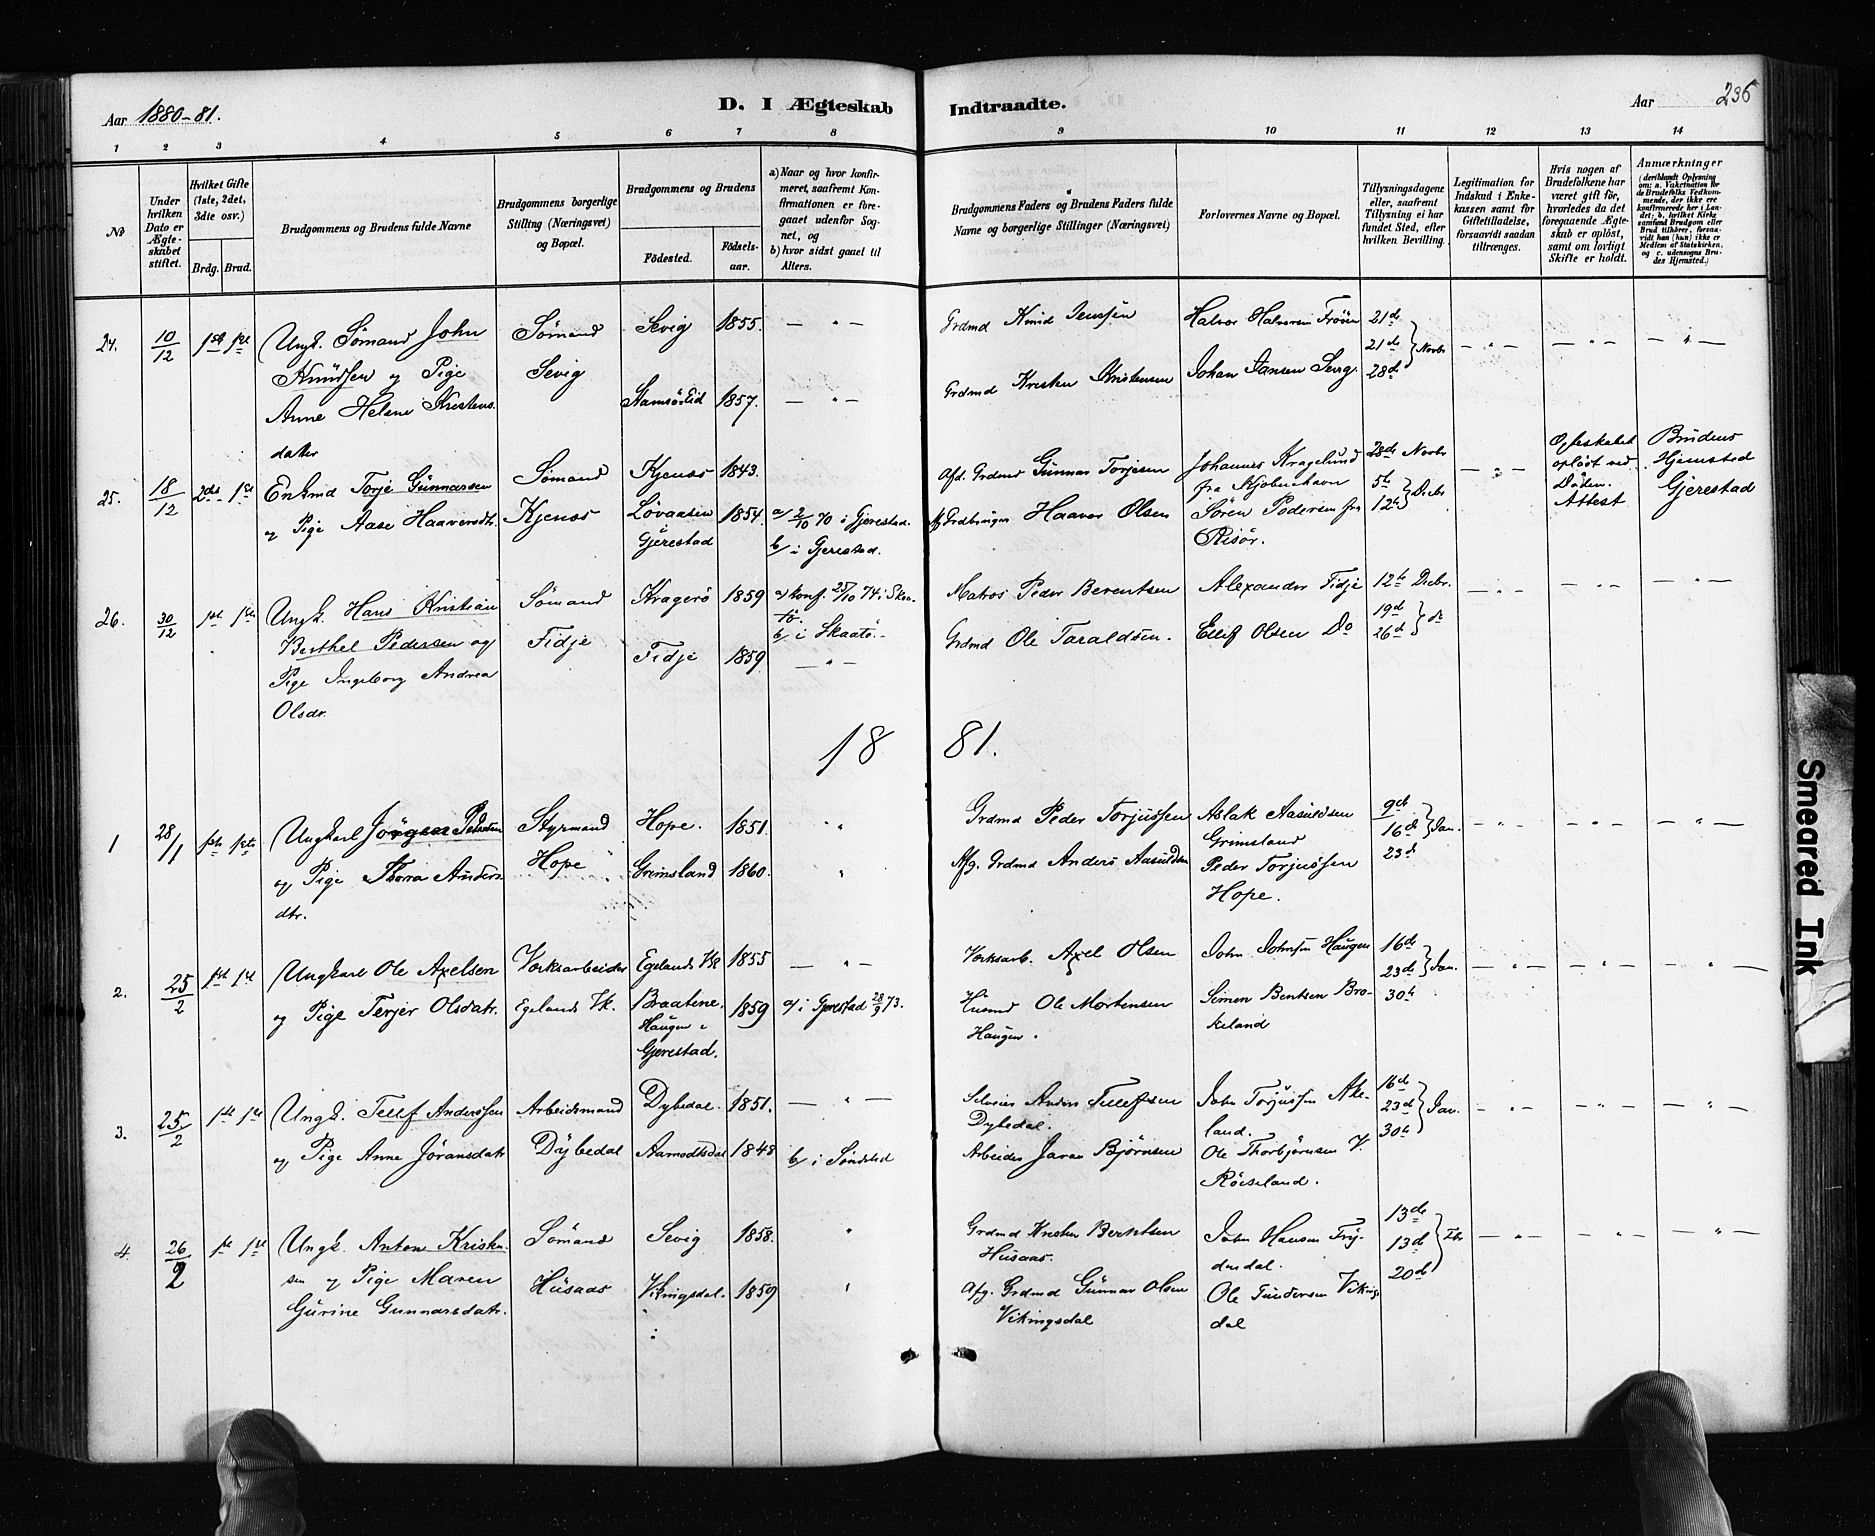 Aar 1880-81.
D. I Ægteskab Indtraadte.
Aar 236
1 2 3 4 5 6 7 8 9 10 11 12 13 14
No
Under hvilken Dato er Ægteskabet stiftet.
Hvilket Gifte (1ste, 2det, 3die osv.)
Brdg. Brud.
Brudgommens og Brudens fulde Navne
Brudgommens borgerlige Stilling (Næringsvei) og Bopæl.
Brudgommens og Brudens
Födested.
Födselsaar.
a) Naar og hvor konfirmeret, saafremt Konfirmationen er foregaaet udenfor Sognet, og
b) hvor sidst gaaet til Alters.
Brudgommens Faders og Brudens Faders fulde Navne og borgerlige Stillinger (Næringsvei)
Forlovernes Navne og Bopæl.
Tillysningsdagene eller, saafremt Tillysning ei har fundet Sted, efter hvilken Bevilling.
Legitimation for Indskud i Enkekassen samt for Giftetilladelse, forsaavidt saadan tiltrænges.
Hvis nogen af Brudefolkene har været gift för, hvorledes da det foregaaende Ægteskab er oplöst, samt om lovligt Skifte er holdt.
Anmærkninger (deriblandt Oplysning om: a. Vakcination for de Brudefolks Vedkommende, der ikke ere konfirmerede her i Landet; b. hvilket Kirkesamfund Brudgom eller Brud tilhörer, forsaavidt han (hun) ikke er Medlem af Statskirken, og c. udensogns Brudes Hjemsted.)
24. 10/12 1ste 1ste Ungk. Sømand John Knudsen og Pige Anne Helene Kristensdatter
Sømand Sevig
Sevig 1855. — " —
Stamsöeid 1857. — " —
Grdmd Knud Jenssen
Grdmd Kristen Kristensen
Halvor Halvorsen Fröen
Johan Jansen Sevig
21de 21de 28de Novbr
— " — — " — — " —
25. 18/12 2den 1ste Enkemd Torje Gunnarsen og Pige Aase Haaversdtr.
Sømand Kjenos
Kjenos 1843.
Lövaasen Gjerestad 1854. a/ 2/10 70 i Gjerestad. b/ i Gjerestad.
Afd. Grdmd Gunnar Torjesen
Haaver Olsen
Johannes Kragelund fra Kjøbenhavn
Sören Pedersen fra Risör.
28de Novbr 5te 12te Decbr
— " —
Egteskabet oplöst ved Döden. Attest
Brudens Hjemsted Gjerestad
26. 30/12 1ste 1ste Ungk. Hans Kristian Berthel Pedersen og Pige Ingeborg Andrea Olsdr.
Sømand Fidje
Kragerö 1859 a/ konf. 25/10 74 i Skaatö. b/ i Skaatö.
Fidje 1859 — " —
Matros Peder Berentsen
Grdmd Ole Taraldsen.
Alexander Fidje
Ellef Olsen Do
12te Decbr. 19de 26de do
— " — — " — — " —
18 81.
1 28/1 1ste 1ste Ungkarl Jörgen Pedersen og Pige Thora Andersdtr.
Styrmand Hope
Hope. 1851. "
Grimsland 1860. "
Grdmd Peder Torjussen
Afg. Grdmd Anders Aasuldsen
Aslak Aasuldsen Grimsland
Peder Torjussen Hope.
9de 16de 23de Jan.
— " — — " — — " —
2. 25/2 1ste 1ste Ungkarl Ole Axelsen og Pige Terjer Olsdatr.
Verksarbeider Egelands Vk.
Egelands Vk 1855 — " —
Braatene Haugen i Gjerestad. 1859 a/ i Gjerestad 28/9 73.
Verksarb. Axel Olsen
Husmd Ole Mortensen Haugen.
John Johnsen Haugen
Simon Bentsen Brokeland
16de 23de 30te Jan.
— " — — " — — " —
3. 25/2 1ste 1ste Ungk. Tellef Anderssen og Pige Anne Jöransdatr
Arbeidsmand Dybedal
Dybedal. 1851. — " —
Aamodtsdal 1848 b/ i Søndeled
Selveier Anders Tellefsen Dybedal.
Arbeider Jøran Björnsen
John Torjussen Akeland.
Ole Thorbjörnsen V. Röiseland.
16de 23de 30te Jan.
— " — — " — — " —
4 26/2 1ste 1ste Ungk. Anton Kristensen og Pige Maren Gurine Gunnarsdatr.
Sømand Husaas
Sevig 1858. "
Vikingsdal. 1859 "
Grdmd Kristen Berthsen Husaas.
Afg. Grdmd Gunnar Olsen Vikingsdal
John Hansen Frydendal.
Ole Gundersen Vikingsdal
13de 13de 20de Fbr
— " — — " — — " —
Smeared Ink